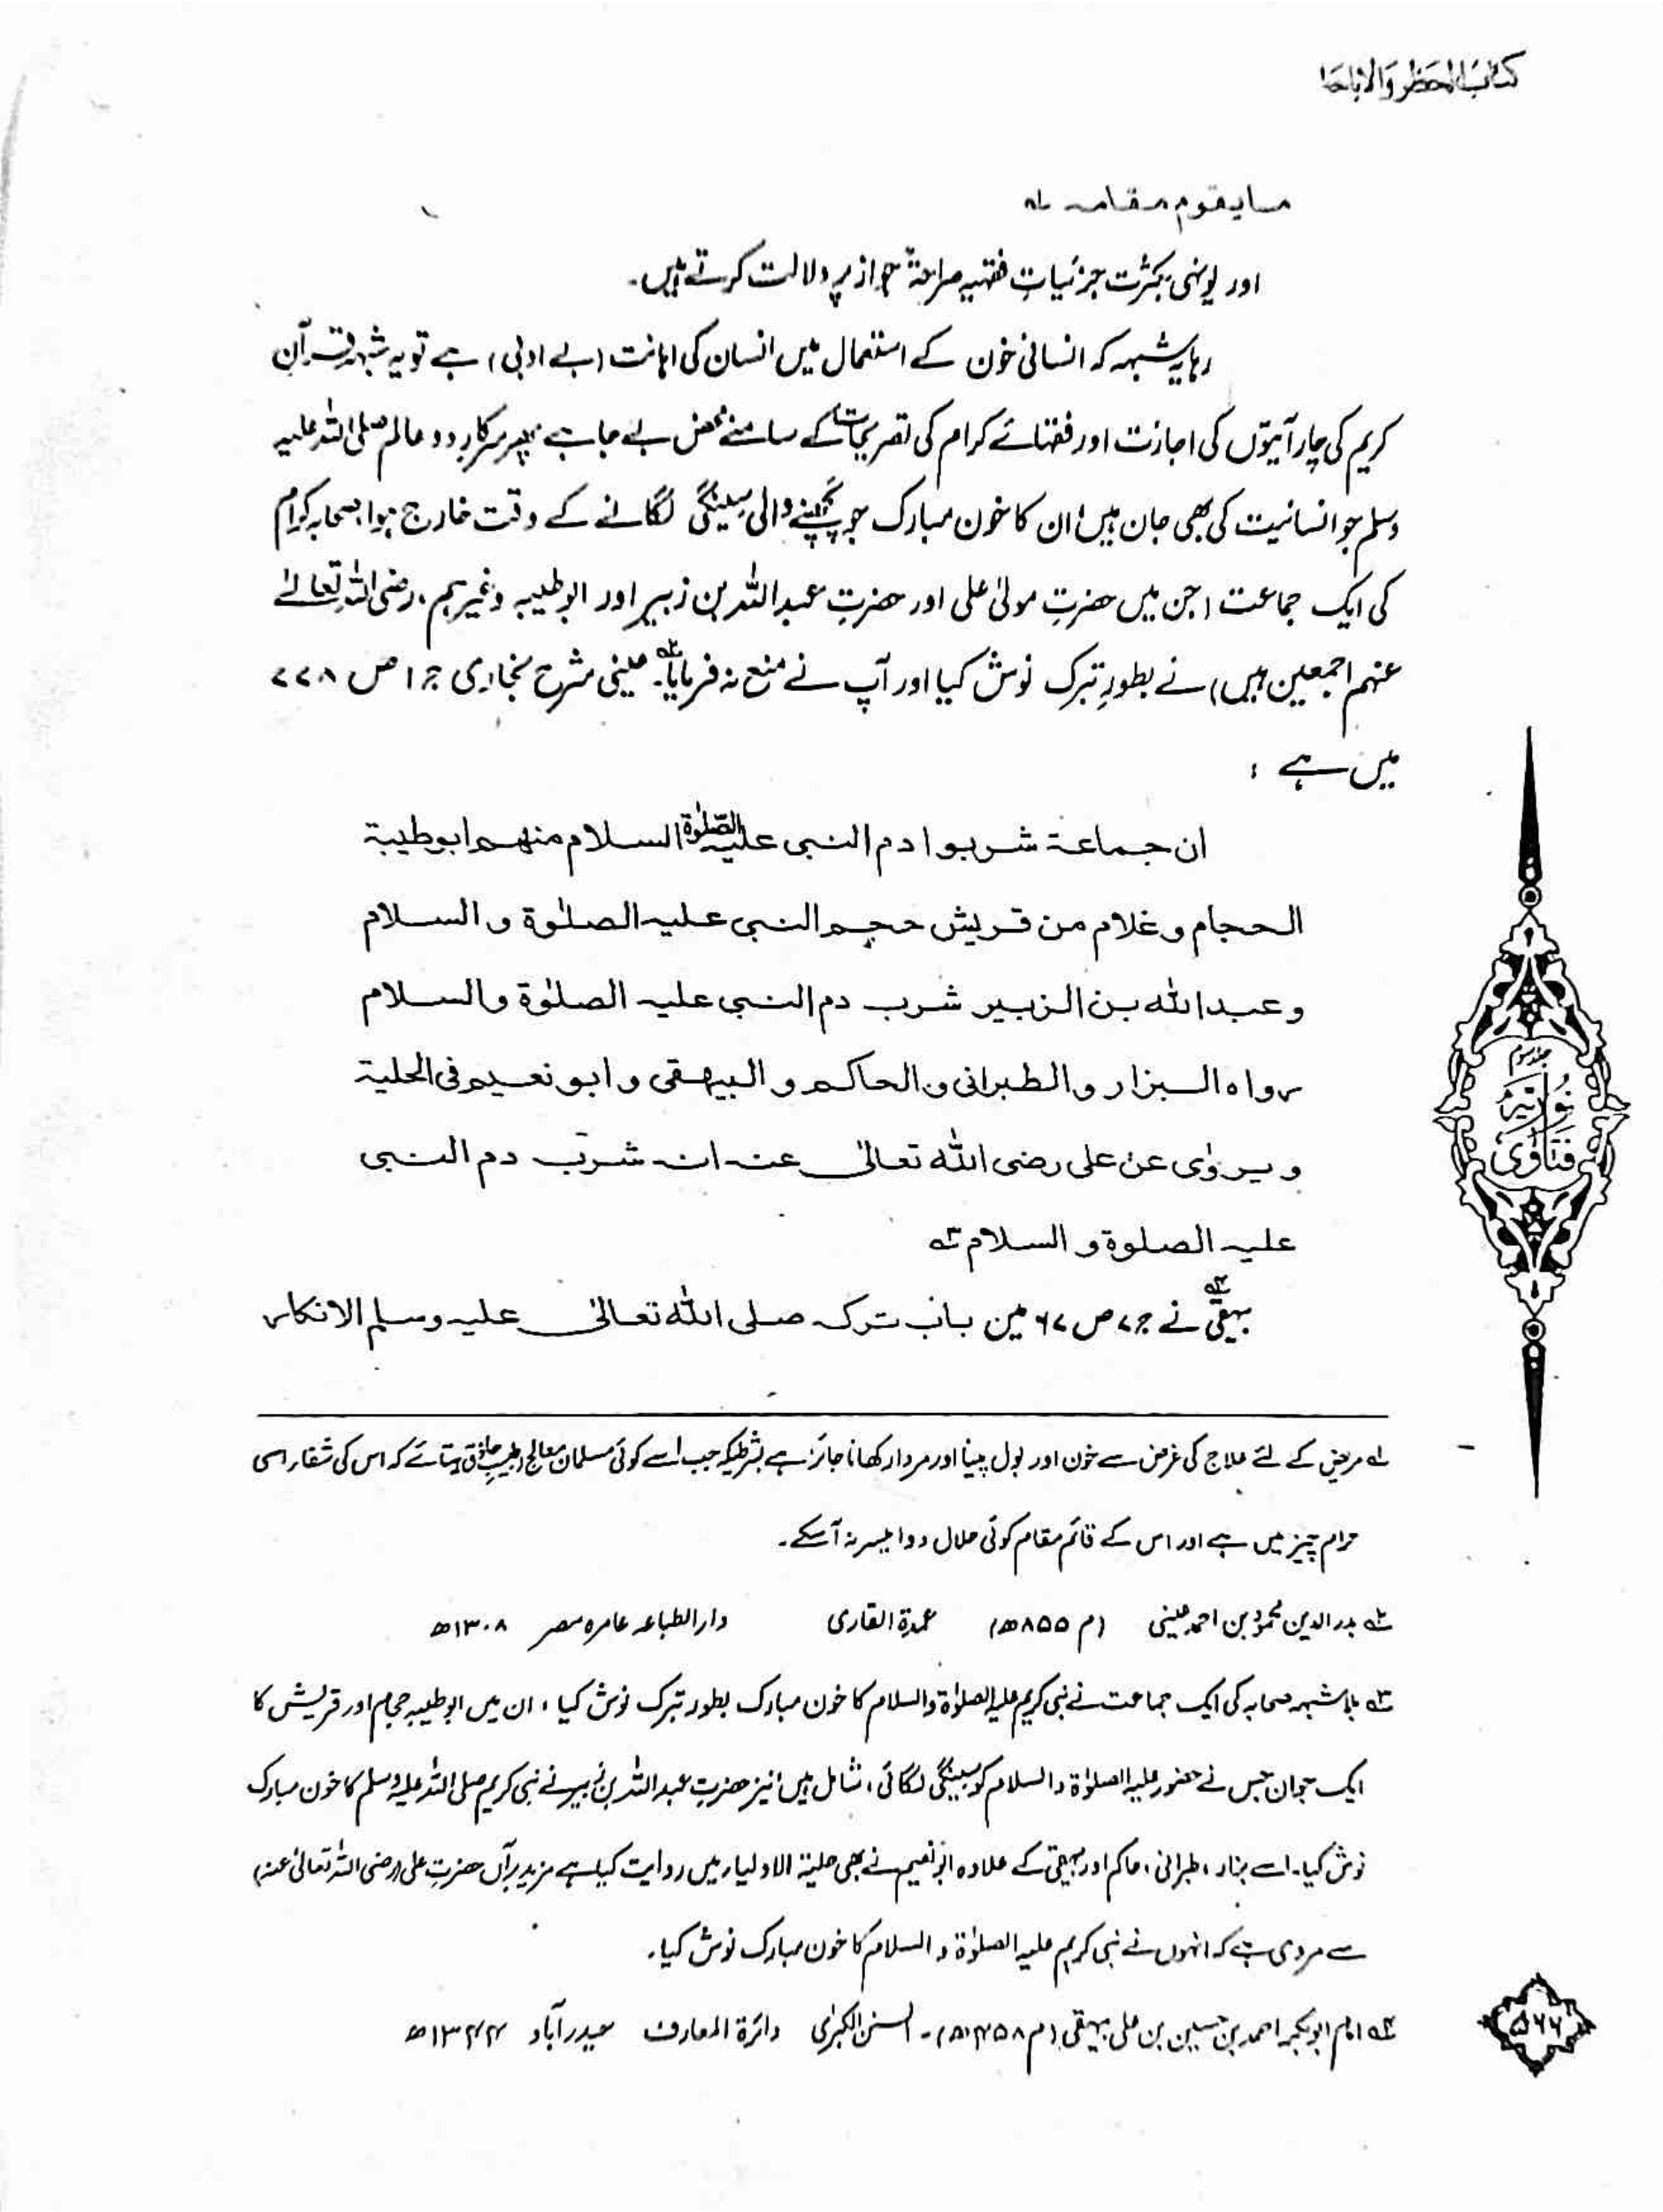 کتاب الحظر والاباحا
مایقوم مقامہ لہ
اور یونہی بکثرت جزئیاتِ فقہیہ صراحۃً جواز پر دلالت کرتے ہیں۔
رہا یہ شبہہ کہ انسانی خون کے استعمال میں انسان کی اہانت (بے ادبی) ہے تو یہ شبہہ قرآن
کریم کی چار آیتوں کی اجازت اور فقہائے کرام کی تصریحات کے سامنے محض بے جا ہے پھر سرکارِ دو عالم صلی اللہ علیہ
وسلم جو انسانیت کی بھی جان ہیں، ان کا خون مبارک جو پچھنے والی سینگی لگانے کے وقت خارج ہوا، صحابہ کرام
کی ایک جماعت (جن میں حضرتِ مولیٰ علی اور حضرتِ عبداللہ بن زبیر اور ابوطیبہ وغیرہم، رضی اللہ تعالےٰ
عنہم اجمعین ہیں) نے بطورِ تبرک نوش کیا اور آپ نے منع نہ فرمایا۔ عینی شرح بخاری ج ۱ ص ۷۷۸
میں ہے :
ان جماعۃ شربوا دم النبی علیہ الصلٰوۃ السلام منہم ابوطیبۃ
الحجام و غلام من قریش حجم النبی علیہ الصلٰوۃ و السلام
و عبداللہ بن الزبیر شرب دم النبی علیہ الصلٰوۃ والسلام
رواہ البزار و الطبرانی و الحاکم و البیہقی و ابو نعیم فی الحلیۃ
و یروٰی عن علی رضی اللہ تعالیٰ عنہ انہ شرب دم النبی
علیہ الصلوۃ و السلام ۳ہ
بیہقی۴ہ نے ج ۷ ص ۶۷ میں باب ترکہ صلی اللہ تعالیٰ علیہ وسلم الانکار
۱ہ مریض کے لئے علاج کی غرض سے خون اور بول پینا اور مردار کھانا جائز ہے بشرطیکہ جب اسے کوئی مسلمان معالج طبیب حاذق بتائے کہ اس کی شفار اسی
حرام چیز میں ہے اور اس کے قائم مقام کوئی حلال دوا میسر نہ آسکے۔
۲ہ بدر الدین محمود بن احمد عینی (م ۸۵۵ھ) عمدۃ القاری دارالطباعہ عامرہ مصر ۱۳۰۸ھ
۳ہ بلاشبہہ صحابہ کی ایک جماعت نے نبی کریم علیہ الصلوٰۃ والسلام کا خون مبارک بطور تبرک نوش کیا، ان میں ابوطیبہ حجام اور قریش کا
ایک جوان جس نے حضور علیہ الصلوٰۃ والسلام کو سینگی لگائی، شامل ہیں نیز حضرتِ عبداللہ بن زبیر نے نبی کریم صلی اللہ علیہ وسلم کا خون مبارک
نوش کیا۔ اسے بزار، طبرانی، حاکم اور بیہقی کے علاوہ ابو نعیم نے بھی حلیۃ الاولیار میں روایت کیا ہے مزید برآں حضرتِ علی (رضی اللہ تعالیٰ عنہ)
سے مروی ہے کہ انہوں نے نبی کریم علیہ الصلوٰۃ و السلام کا خون مبارک نوش کیا۔
۴ہ امام ابوبکر احمد بن حسین بن علی بیہقی (م ۴۵۸ھ)۔ السنن الکبرٰی دائرۃ المعارف حیدرآباد ۱۳۴۴ھ
جلد سوم
نوریہ
فتاوٰی
۵۶۶